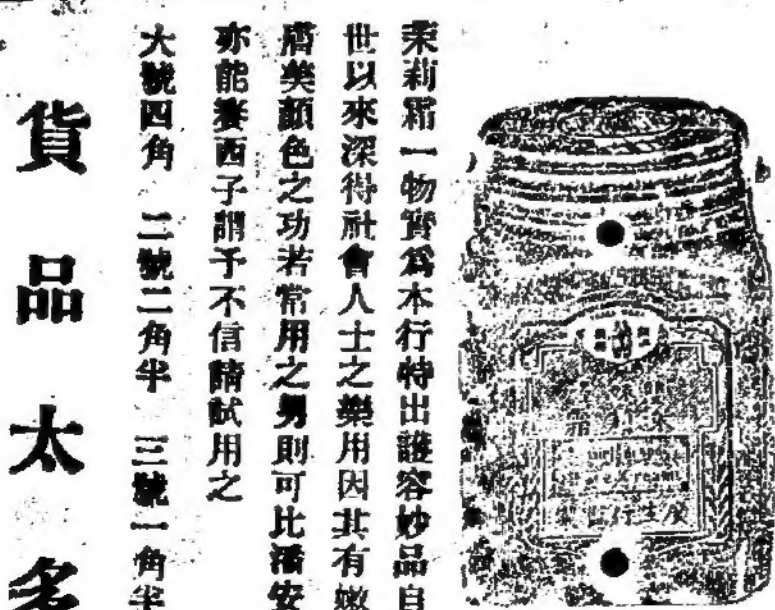 茉莉霜一物實爲本行特出護容妙品自
世以來深得社會人士之樂用因其有嫩
膚美顏色之功若常用之男則可比潘安
亦能賽西子謂予不信請試用之
大號四角 二號二角半 三號一角半
貨品太多